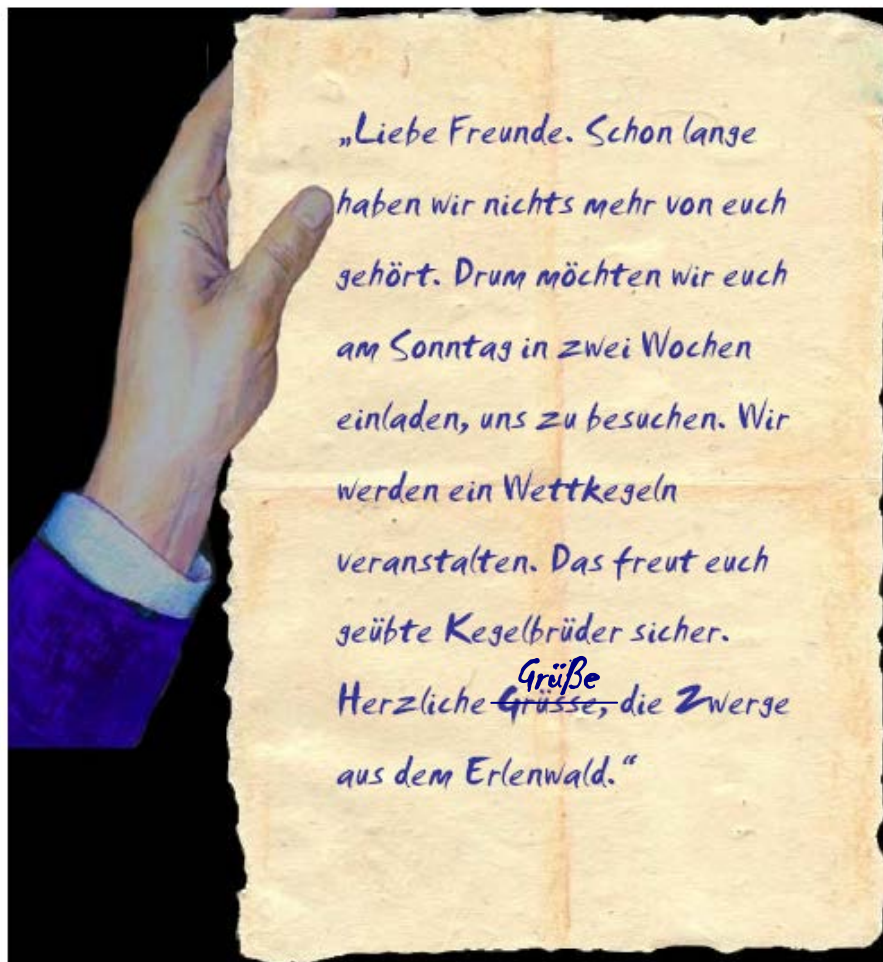 „Liebe Freunde. Schon lange
haben wir nichts mehr von euch
gehört. Drum möchten wir euch
am Sonntag in zwei Wochen
einladen, uns zu besuchen. Wir
werden ein Wettkegeln
veranstalten. Das freut euch
geübte Kegelbrüder sicher.
Grüße
Herzliche Grüsse, die Zwerge
aus dem Erlenwald.“